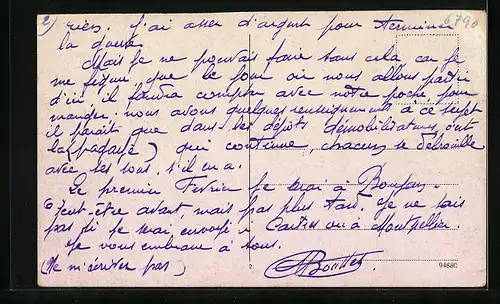 2) rien. J'ai assez d'argent pour terminer
la guerre.
Mais je ne pouvais faire sans cela, car je
me figure que le jour où nous allons partir
d'ici il faudra compter avec notre poche pour
manger. nous avons quelques renseignements à ce sujet
il parait que dans les dépôts démobilisateurs, c'est
la (pagaïe) qui continue, chacun se débrouille
avec ses sous, s'il en a.
Le premier Février je serai à
Peut-être avant, mais pas plus tard. Je ne sais
pas si je serai envoyé à Castres ou à Montpellier.
Je vous embrasse à tous.
(Ne m'écrivez pas)
2.
94880